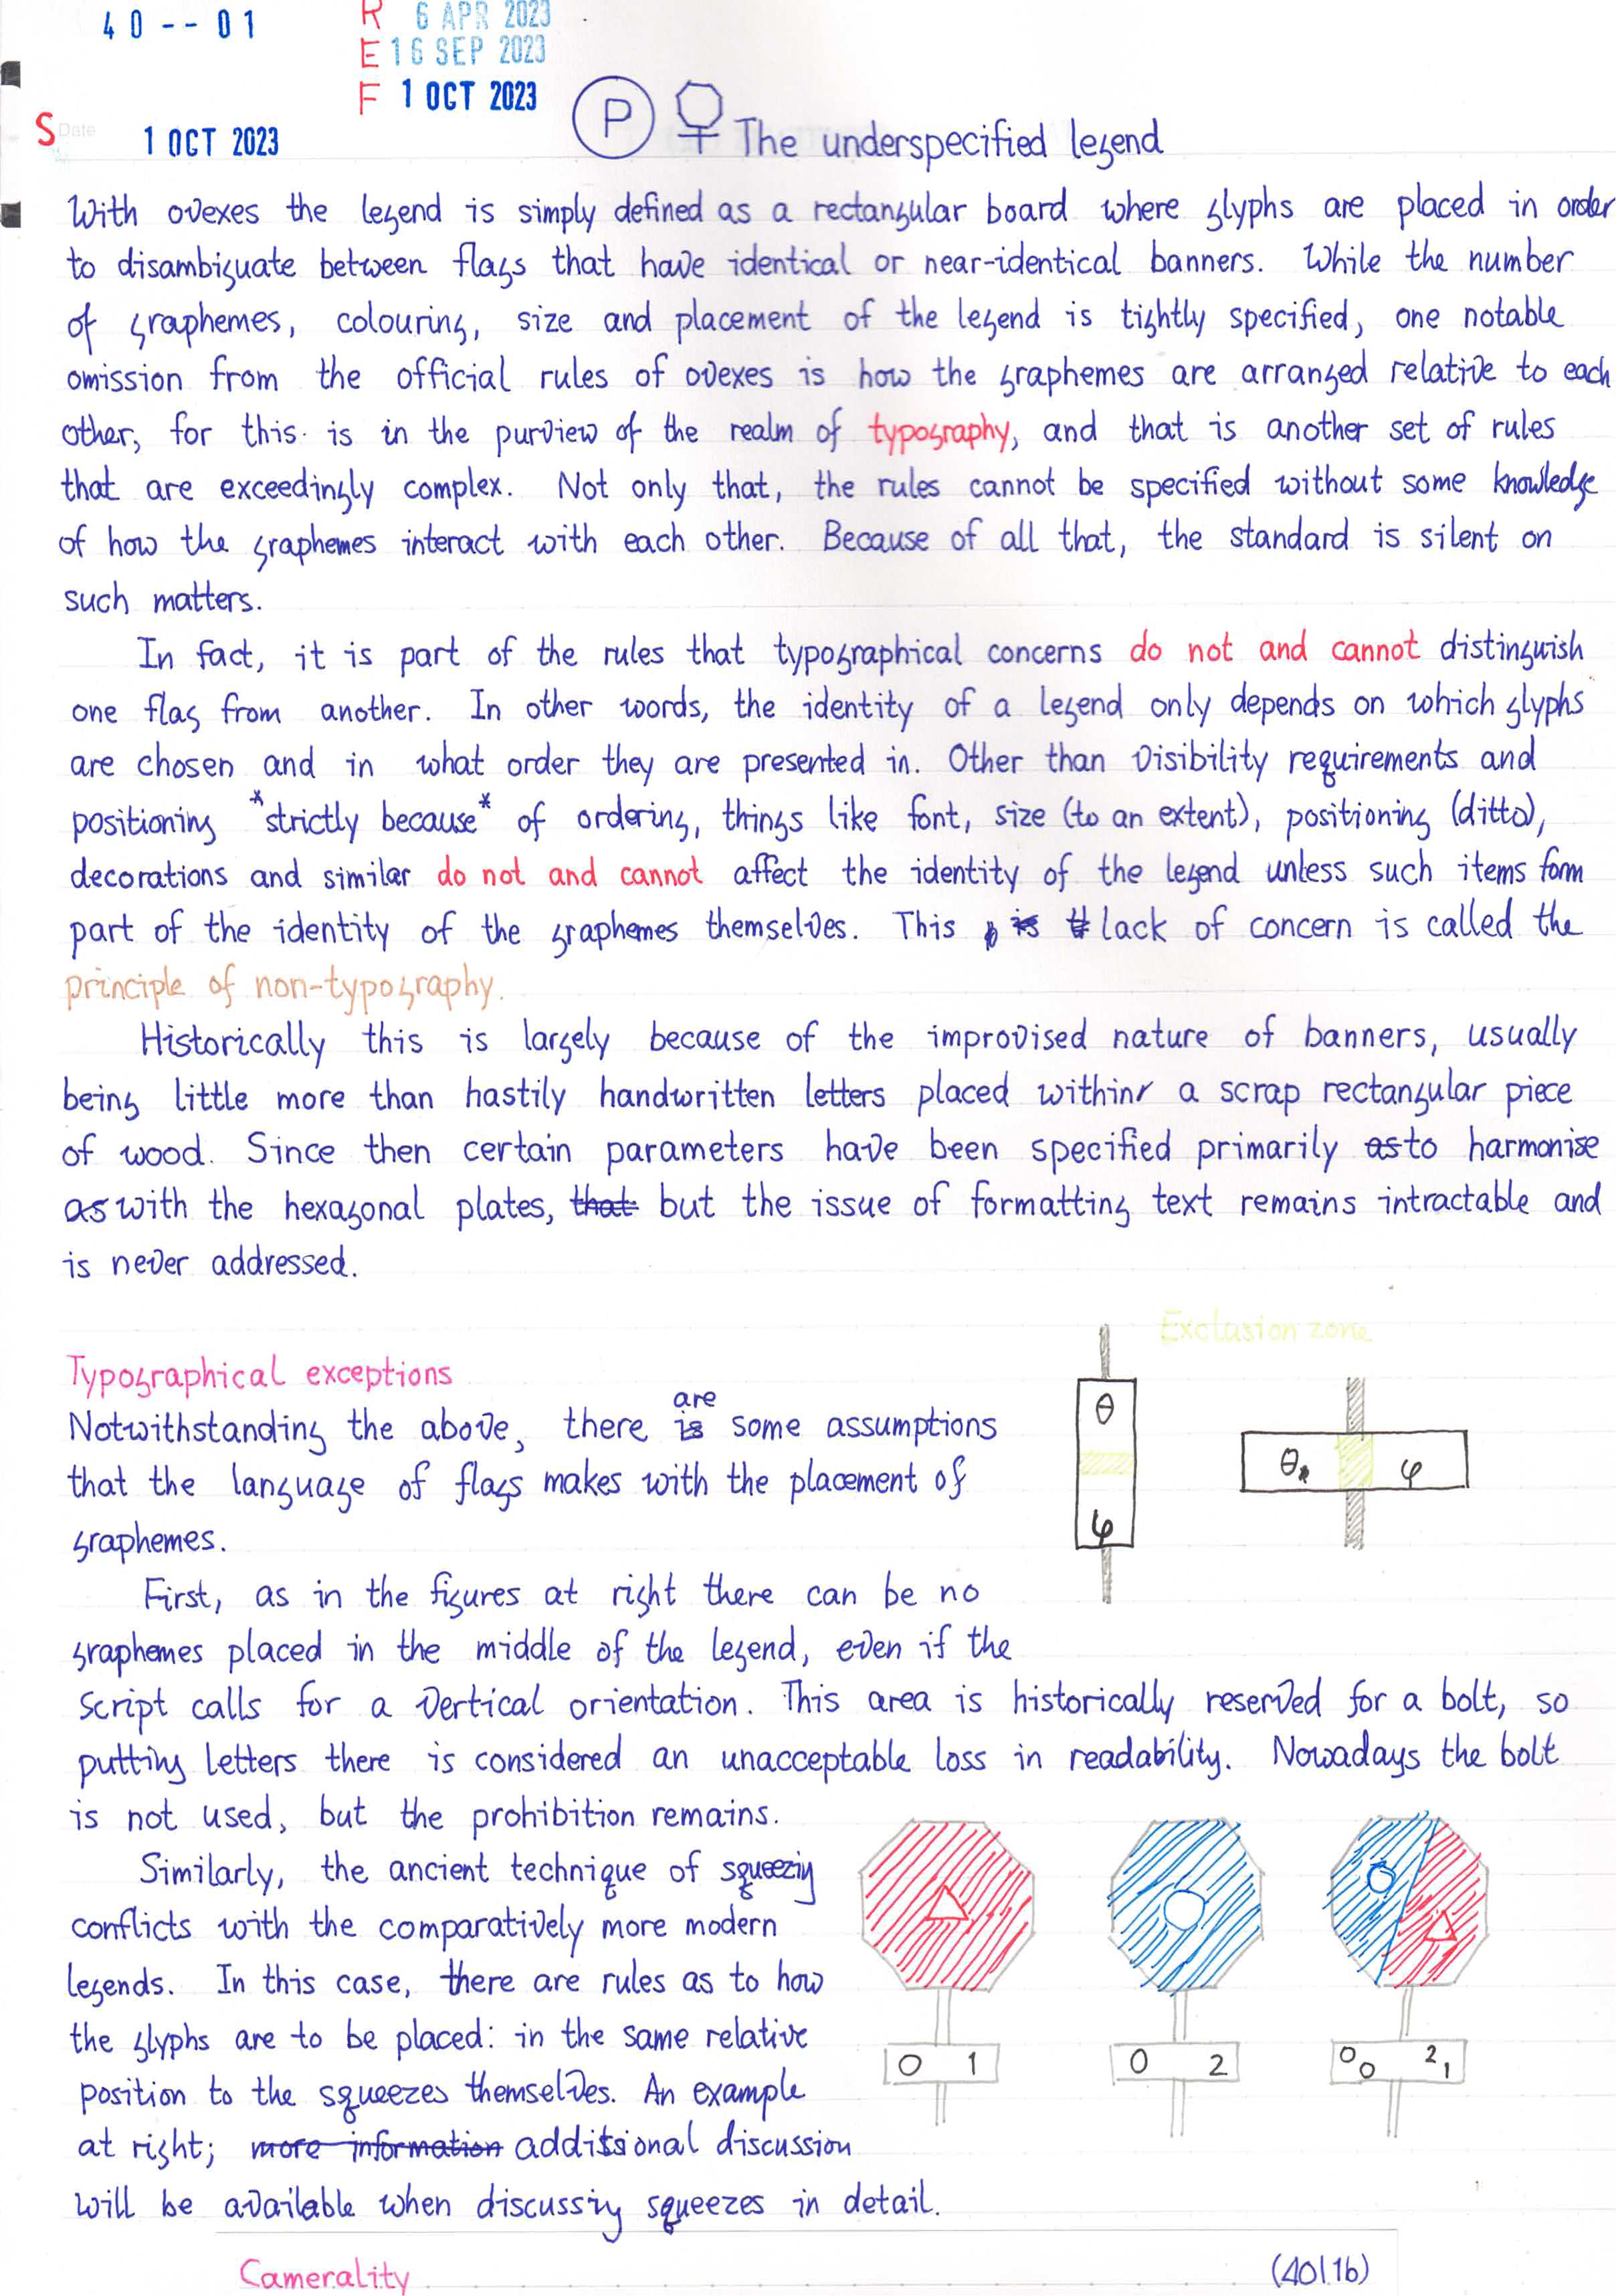 40--01
R 6 APR 2023
E 16 SEP 2023
F 1 OCT 2023
S Date 1 OCT 2023
P The underspecified legend
With ovexes the legend is simply defined as a rectangular board where glyphs are placed in order
to disambiguate between flags that have identical or near-identical banners. While the number
of graphemes, colouring, size and placement of the legend is tightly specified, one notable
omission from the official rules of ovexes is how the graphemes are arranged relative to each
other, for this is in the purview of the realm of typography, and that is another set of rules
that are exceedingly complex. Not only that, the rules cannot be specified without some knowledge
of how the graphemes interact with each other. Because of all that, the standard is silent on
such matters.
In fact, it is part of the rules that typographical concerns do not and cannot distinguish
one flag from another. In other words, the identity of a legend only depends on which glyphs
are chosen and in what order they are presented in. Other than visibility requirements and
positioning *strictly because* of ordering, things like font, size (to an extent), positioning (ditto),
decorations and similar do not and cannot affect the identity of the legend unless such items form
part of the identity of the graphemes themselves. This is lack of concern is called the
principle of non-typography.
Historically this is largely because of the improvised nature of banners, usually
being little more than hastily handwritten letters placed within a scrap rectangular piece
of wood. Since then certain parameters have been specified primarily as to harmonise
as with the hexagonal plates, that but the issue of formatting text remains intractable and
is never addressed.
Exclusion zone
θ
φ
θ φ
Typographical exceptions
are
Notwithstanding the above, there is some assumptions
that the language of flags makes with the placement of
graphemes.
First, as in the figures at right there can be no
graphemes placed in the middle of the legend, even if the
script calls for a vertical orientation. This area is historically reserved for a bolt, so
putting letters there is considered an unacceptable loss in readability. Nowadays the bolt
is not used, but the prohibition remains.
Similarly, the ancient technique of squeezing
conflicts with the comparatively more modern
legends. In this case, there are rules as to how
the glyphs are to be placed: in the same relative
position to the squeezes themselves. An example
at right; more information additional discussion
will be available when discussing squeezes in detail.
0 1
0 2
0 0 2 1
Camerality
(40|1b)